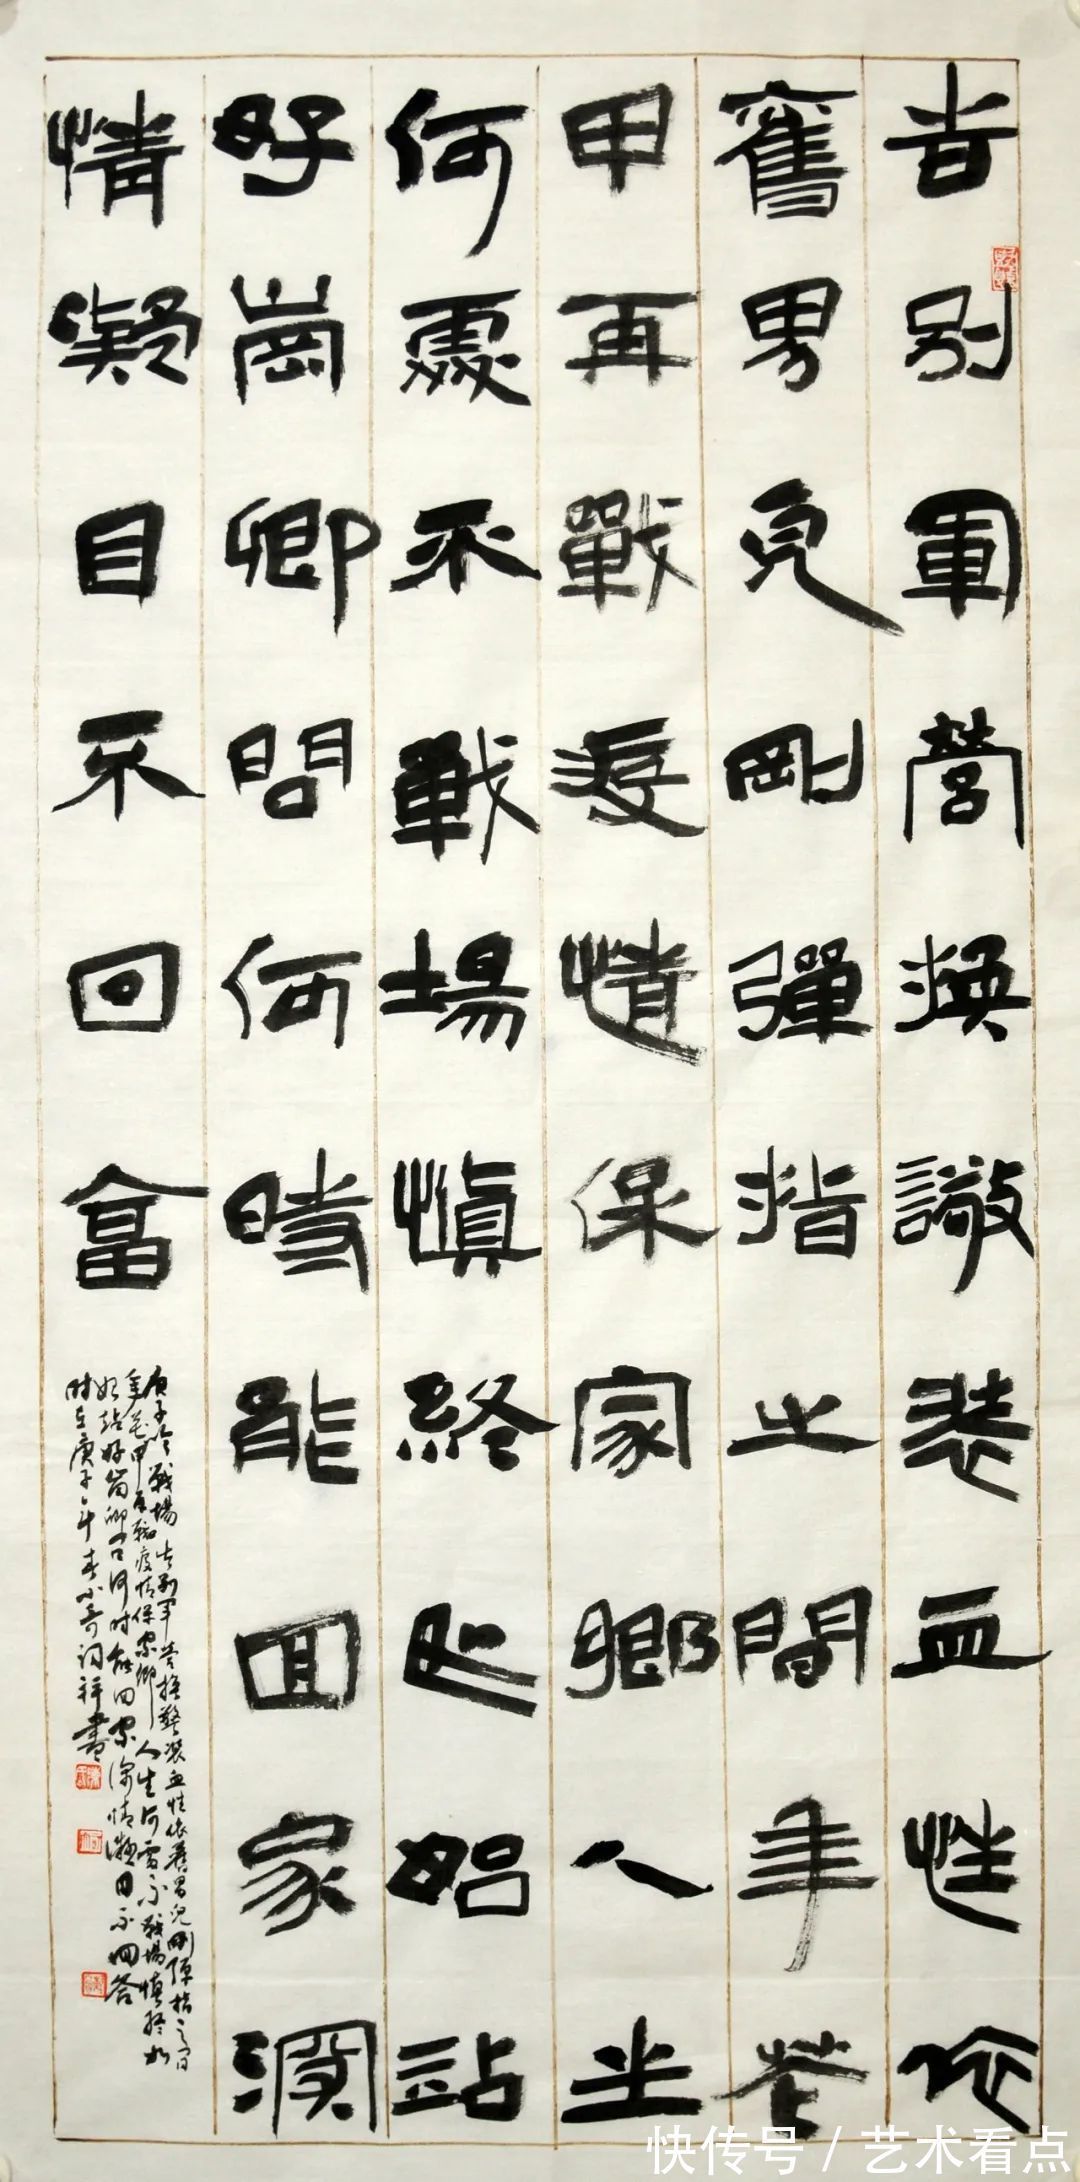 告别軍營換警裝血性依
舊男兒剛彈指之間年花
甲再戰疫情保家鄉人生
何處不戰場慎終始站
好崗卿問何時能回家深
情凝目不回答
庚子戰場告别軍營換警裝血性依舊男兒剛彈指之间
年花甲再戰疫情保家鄉人生何處不戰場慎終如
始站好崗卿问何时能回家深情凝目不回答
时在庚子年春小奇词祥書
快传号/艺术看点